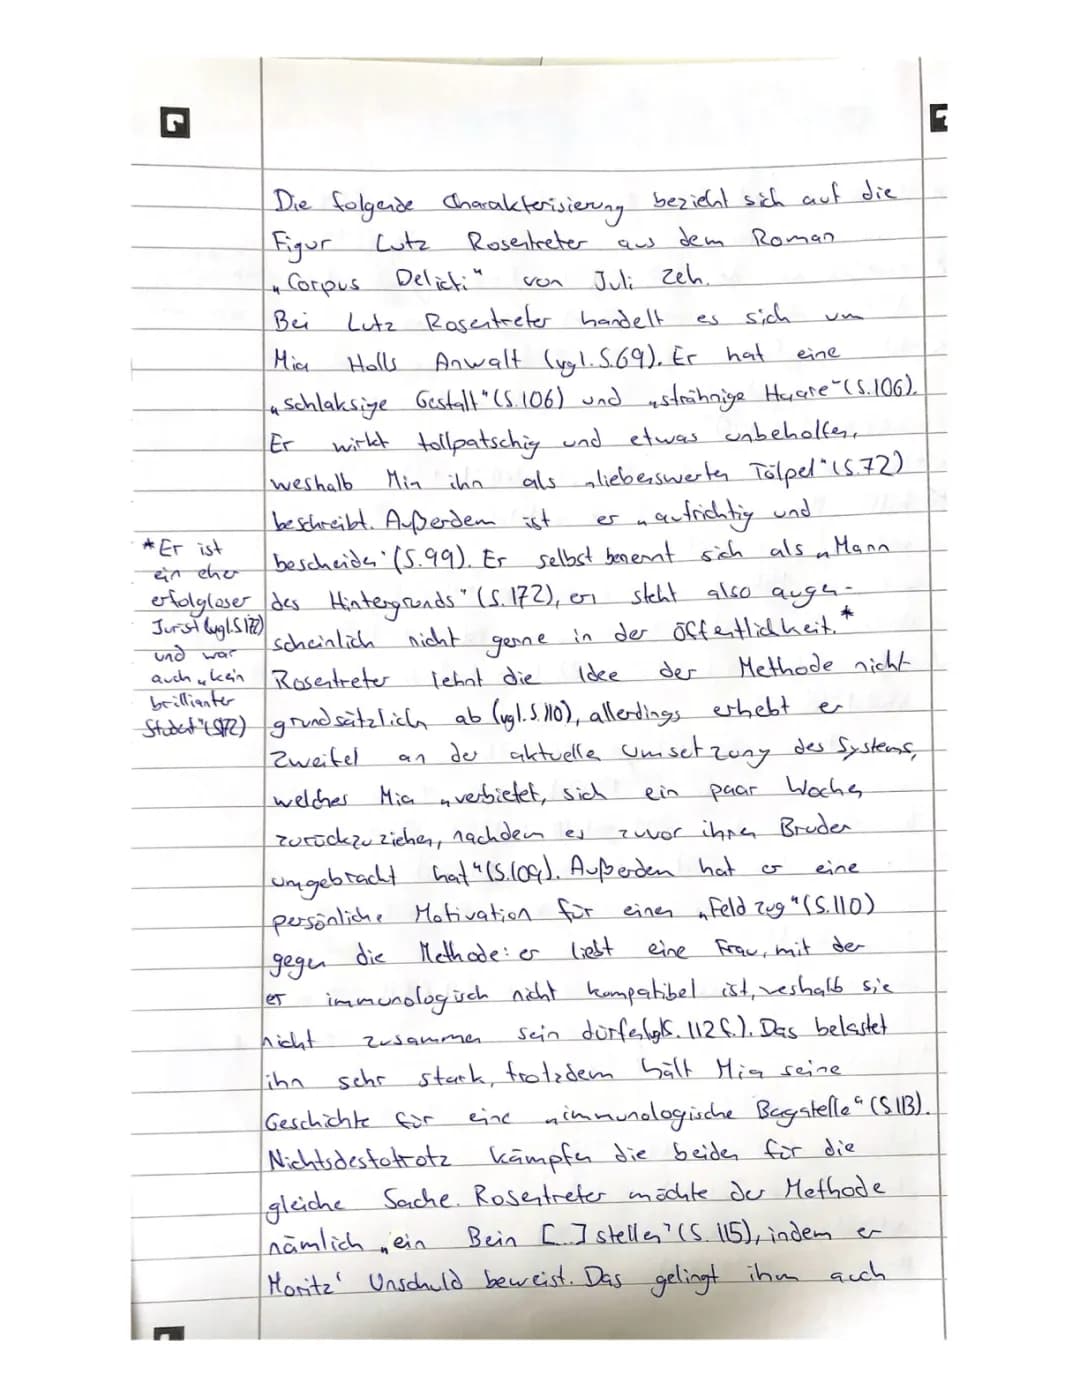 Die folgende Charakterisierung bezieht sich auf die
Figur Lutz Rosentreter aus dem Roman
„Corpus Delicti" von Juli Zeh.
Bei Lutz Rosentreter handelt es sich um
Mia Holls Anwalt (vgl. S.69). Er hat eine
„schlaksige Gestalt" (S.106) und „strähnige Haare" (S.106).
Er wirkt tollpatschig und etwas unbeholfen,
weshalb Mia ihn als „liebenswerten Tölpel" (S.72)
beschreibt. Außerdem ist er „aufrichtig und
bescheiden" (S.99). Er selbst benennt sich als „Mann
des Hintergrunds" (S. 172), er steht also augen-
scheinlich nicht gerne in der Öffentlichkeit.*
*Er ist
ein eher
erfolgloser
Jurist (vgl. S.172)
und war
auch „kein
brillianter
Student" (S.72)
Rosentreter lehnt die Idee der Methode nicht
grundsätzlich ab (vgl. S.110), allerdings erhebt er
Zweifel an der aktuellen Umsetzung des Systems,
welches Mia „verbietet, sich ein paar Wochen
zurückzuziehen, nachdem es zuvor ihren Bruder
umgebracht hat" (S.109). Außerdem hat er eine
persönliche Motivation für einen „Feldzug" (S.110)
gegen die Methode: er liebt eine Frau, mit der
er immunologisch nicht kompatibel ist, weshalb sie
nicht zusammen sein dürfen (vgl. S. 112 f.). Das belastet
ihn sehr stark, trotzdem hält Mia seine
Geschichte für eine „immunologische Bagatelle" (S.113).
Nichtsdestotrotz kämpfen die beiden für die
gleiche Sache. Rosentreter möchte der Methode
nämlich „ein Bein [..] stellen" (S. 115), indem er
Moritz' Unschuld beweist. Das gelingt ihm auch